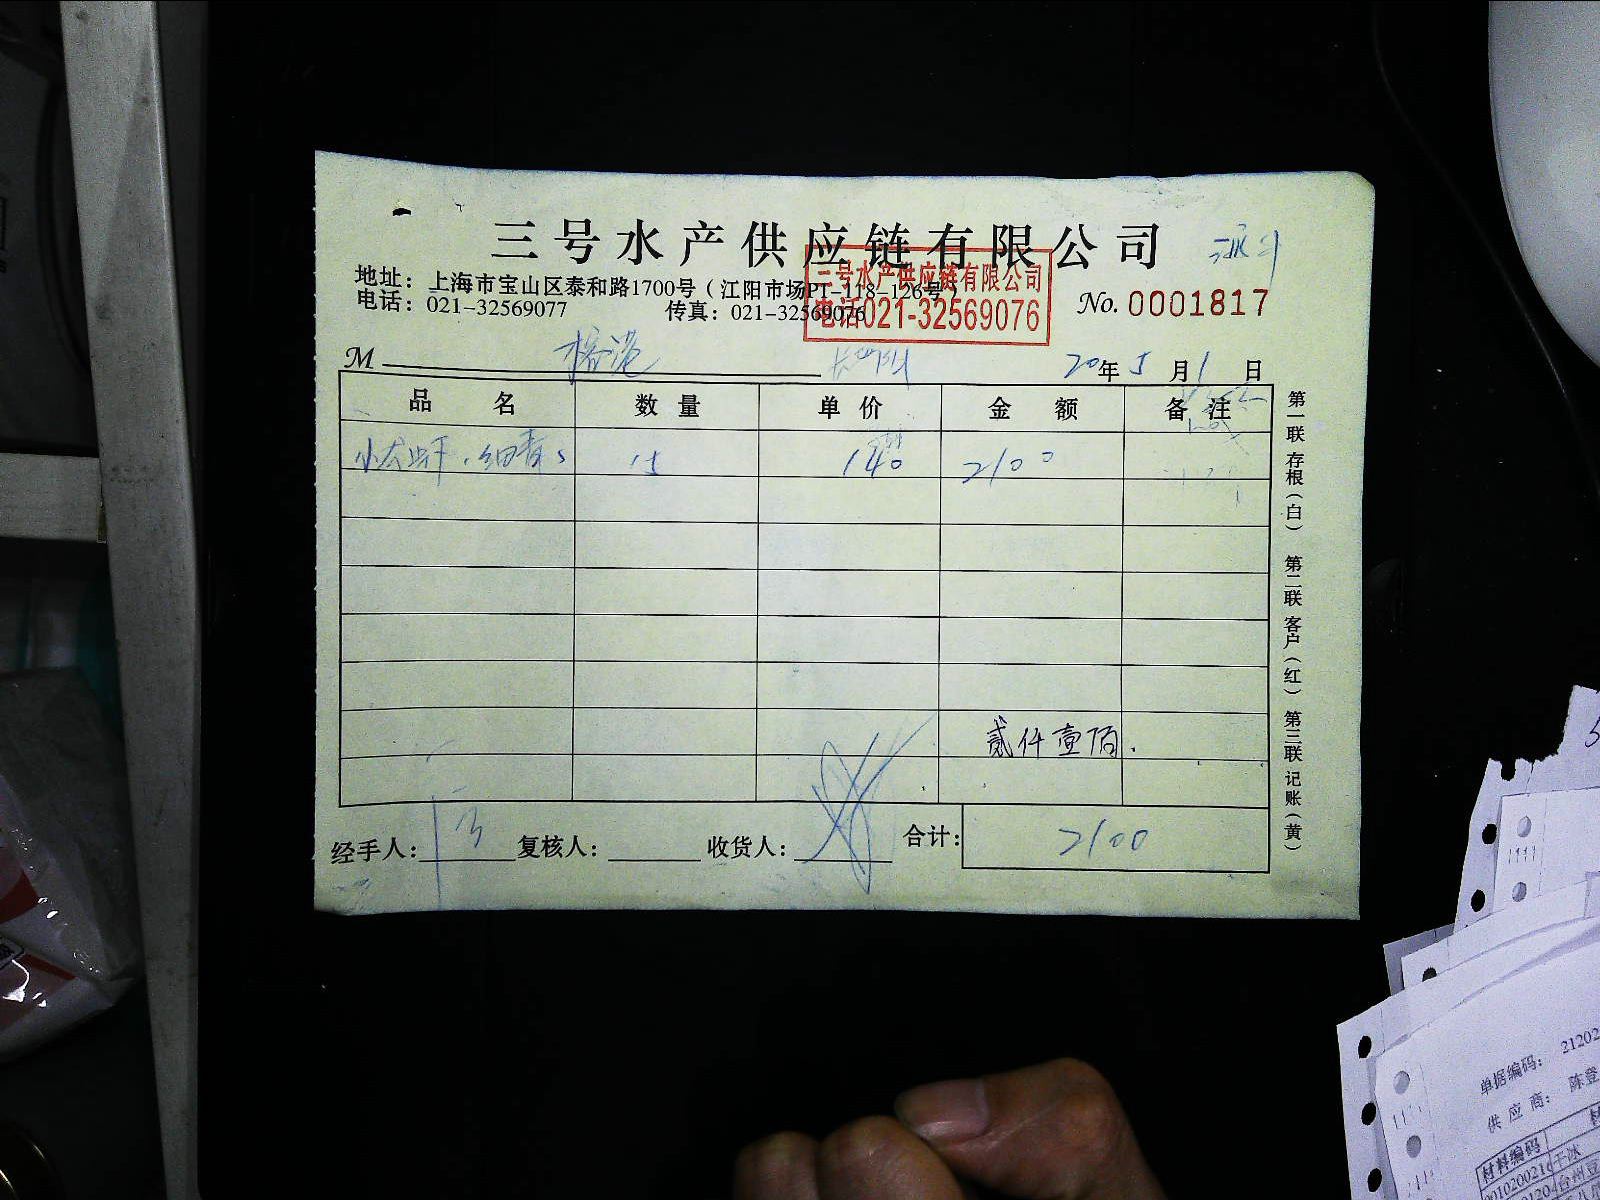 三号水产供应链有限公司
地址：上海市宝山区泰和路1700号（江阳市场P1-118-126号）
电话：021-32569077 传真：021-32569076
三号水产供应链有限公司
电话021-32569076
No. 0001817
M 榕港
20年5月1日
品名 数量 单价 金额 备注
小龙虾 15 140 2100
贰仟壹佰.
经手人： 复核人： 收货人： 合计： 2100
第一联 存根（白） 第二联 客户（红） 第三联 记账（黄）
单据编码： 21202
供应商： 陈登
材料编码
干冰